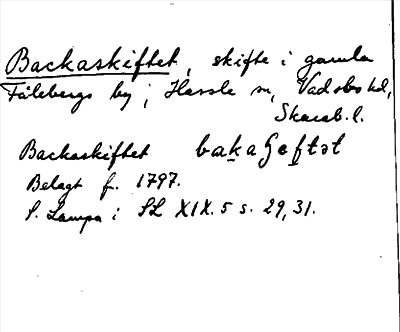 Backaskiftet, skifte i gamla
Fälebergs by, Hassle sn, Vadsbo hd,
Skarab. l.
Backaskiftet baka
Belagt fr. 1797.
S. Lampa i SL XIX. 5 s. 29, 31.